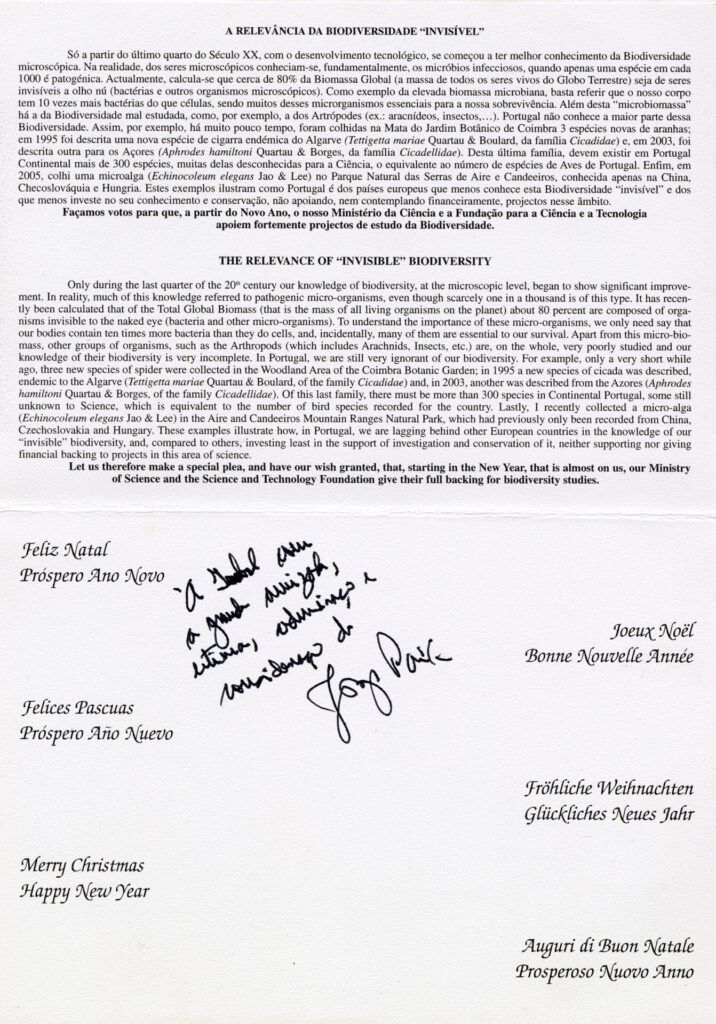 A RELEVÂNCIA DA BIODIVERSIDADE “INVISÍVEL”
Só a partir do último quarto do Século XX, com o desenvolvimento tecnológico, se começou a ter melhor conhecimento da Biodiversidade
microscópica. Na realidade, dos seres microscópicos conheciam-se, fundamentalmente, os micróbios infecciosos, quando apenas uma espécie em cada
1000 é patogénica. Actualmente, calcula-se que cerca de 80% da Biomassa Global (a massa de todos os seres vivos do Globo Terrestre) seja de seres
invisíveis a olho nú (bactérias e outros organismos microscópicos). Como exemplo da elevada biomassa microbiana, basta referir que o nosso corpo
tem 10 vezes mais bactérias do que células, sendo muitos desses microrganismos essenciais para a nossa sobrevivência. Além desta “microbiomassa”
há a da Biodiversidade mal estudada, como, por exemplo, a dos Artrópodes (ex.: aracnídeos, insectos,…). Portugal não conhece a maior parte dessa
Biodiversidade. Assim, por exemplo, há muito pouco tempo, foram colhidas na Mata do Jardim Botânico de Coimbra 3 espécies novas de aranhas;
em 1995 foi descrita uma nova espécie de cigarra endémica do Algarve (Tettigetta mariae Quartau & Boulard, da família Cicadidae) e, em 2003, foi
descrita outra para os Açores (Aphrodes hamiltoni Quartau & Borges, da família Cicadellidae). Desta última família, devem existir em Portugal
Continental mais de 300 espécies, muitas delas desconhecidas para a Ciência, o equivalente ao número de espécies de Aves de Portugal. Enfim, em
2005, colhi uma microalga (Echinocoleum elegans Jao & Lee) no Parque Natural das Serras de Aire e Candeeiros, conhecida apenas na China,
Checoslováquia e Hungria. Estes exemplos ilustram como Portugal é dos países europeus que menos conhece esta Biodiversidade “invisível” e dos
que menos investe no seu conhecimento e conservação, não apoiando, nem contemplando financeiramente, projectos nesse âmbito.
Façamos votos para que, a partir do Novo Ano, o nosso Ministério da Ciência e a Fundação para a Ciência e a Tecnologia
apoiem fortemente projectos de estudo da Biodiversidade.
THE RELEVANCE OF “INVISIBLE” BIODIVERSITY
Only during the last quarter of the 20th century our knowledge of biodiversity, at the microscopic level, began to show significant improve-
ment. In reality, much of this knowledge referred to pathogenic micro-organisms, even though scarcely one in a thousand is of this type. It has recen-
tly been calculated that of the Total Global Biomass (that is the mass of all living organisms on the planet) about 80 percent are composed of orga-
nisms invisible to the naked eye (bacteria and other micro-organisms). To understand the importance of these micro-organisms, we only need say that
our bodies contain ten times more bacteria than they do cells, and, incidentally, many of them are essential to our survival. Apart from this micro-bio-
mass, other groups of organisms, such as the Arthropods (which includes Arachnids, Insects, etc.) are, on the whole, very poorly studied and our
knowledge of their biodiversity is very incomplete. In Portugal, we are still very ignorant of our biodiversity. For example, only a very short while
ago, three new species of spider were collected in the Woodland Area of the Coimbra Botanic Garden; in 1995 a new species of cicada was described,
endemic to the Algarve (Tettigetta mariae Quartau & Boulard, of the family Cicadidae) and, in 2003, another was described from the Azores (Aphrodes
hamiltoni Quartau & Borges, of the family Cicadellidae). Of this last family, there must be more than 300 species in Continental Portugal, some still
unknown to Science, which is equivalent to the number of bird species recorded for the country. Lastly, I recently collected a micro-alga
(Echinocoleum elegans Jao & Lee) in the Aire and Candeeiros Mountain Ranges Natural Park, which had previously only been recorded from China,
Czechoslovakia and Hungary. These examples illustrate how, in Portugal, we are lagging behind other European countries in the knowledge of our
“invisible” biodiversity, and, compared to others, investing least in the support of investigation and conservation of it, neither supporting nor giving
financial backing to projects in this area of science.
Let us therefore make a special plea, and have our wish granted, that, starting in the New Year, that is almost on us, our Ministry
of Science and the Science and Technology Foundation give their full backing for biodiversity studies.
Feliz Natal
Próspero Ano Novo
a grande amizade,
estima, admiração e
consideração do
Jorge Paiva
Joeux Noël
Bonne Nouvelle Année
Felices Pascuas
Próspero Año Nuevo
Fröhliche Weihnachten
Glückliches Neues Jahr
Merry Christmas
Happy New Year
Auguri di Buon Natale
Prosperoso Nuovo Anno